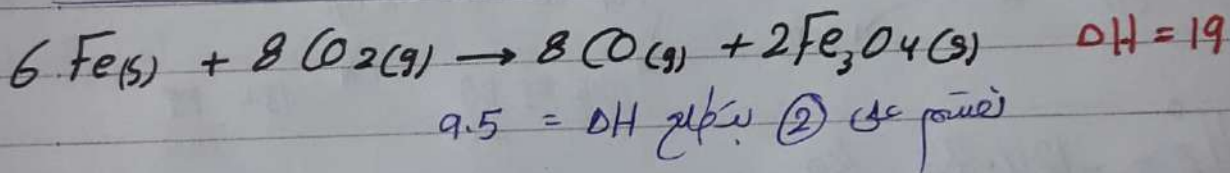 6 Fe(s) + 8 CO2(g) → 8 CO(g) + 2Fe3O4(s) ΔH = 19
نقسم على ② بيطلع ΔH = 9.5